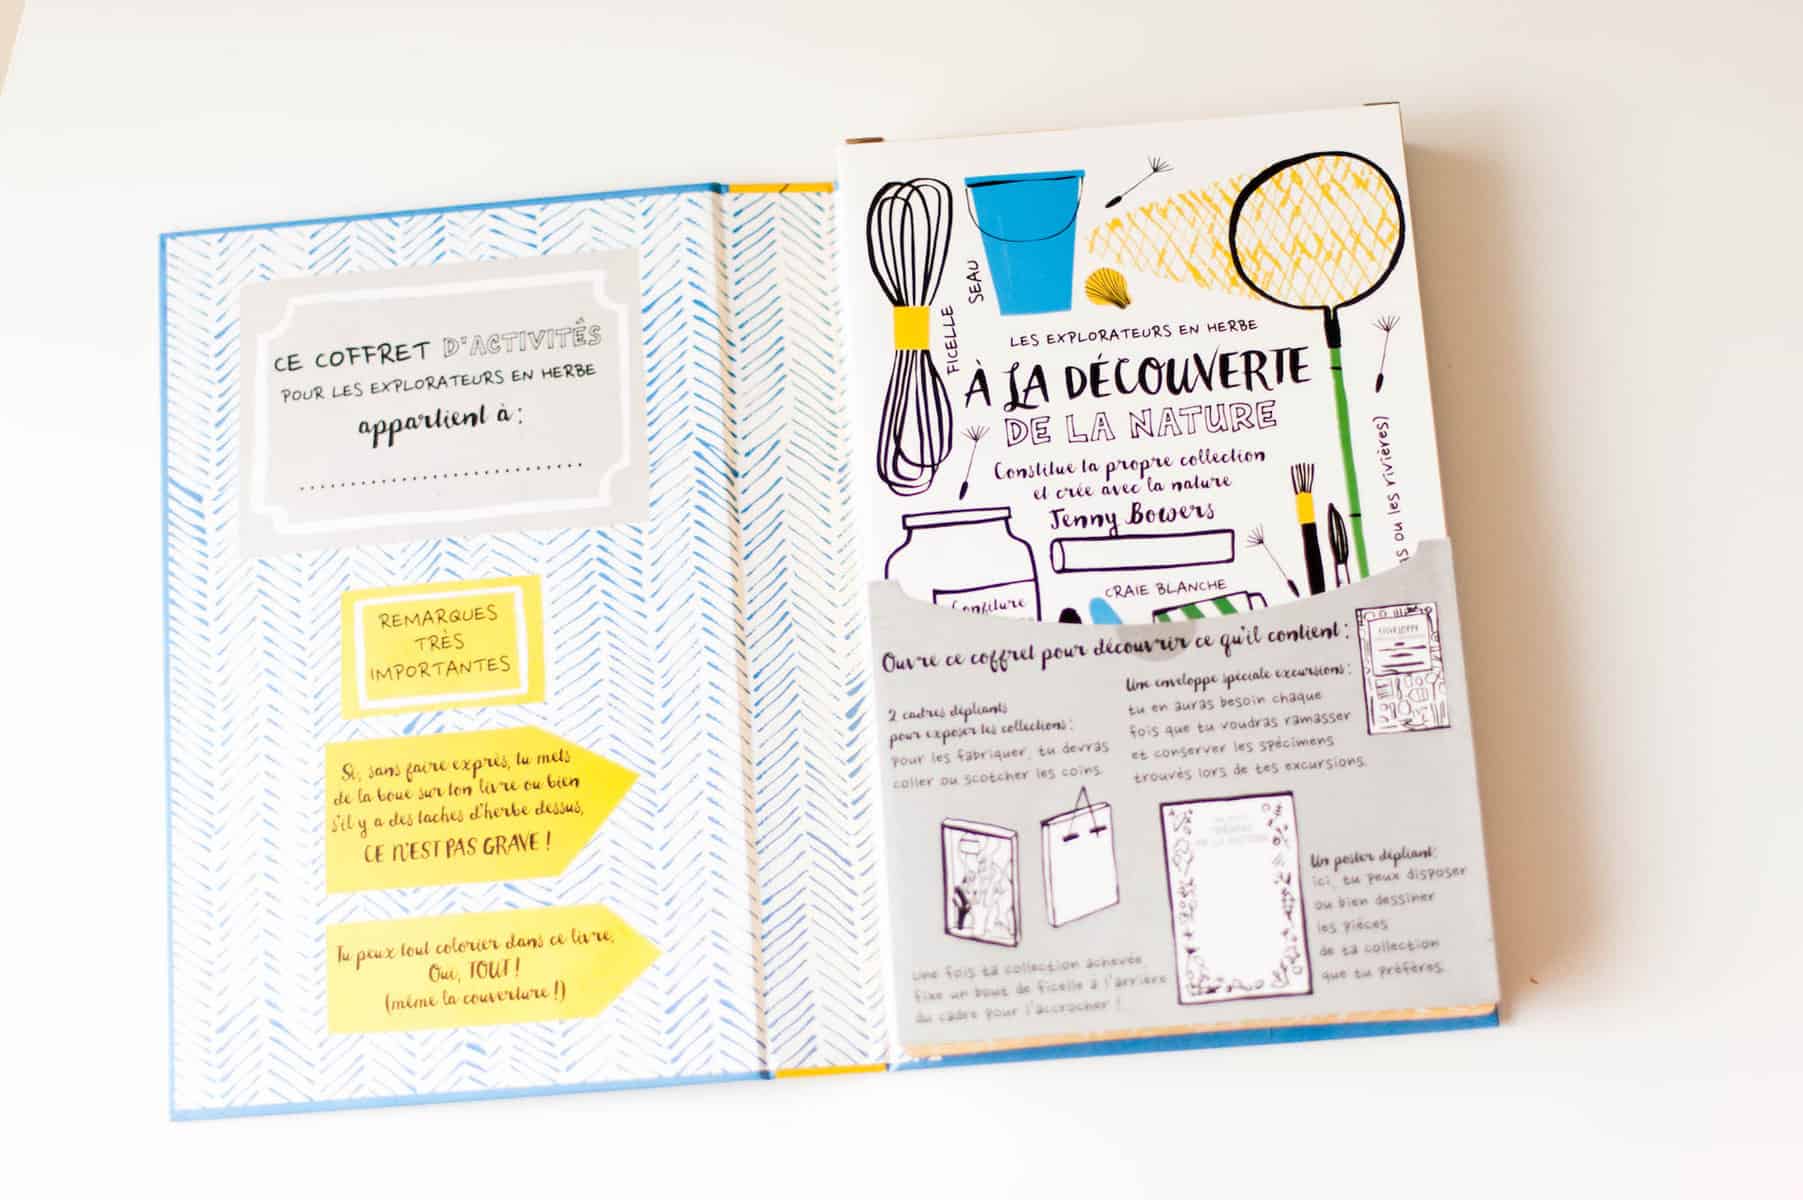 CE COFFRET D'ACTIVITÉS
POUR LES EXPLORATEURS EN HERBE
appartient à :
REMARQUES
TRÈS
IMPORTANTES
Si, sans faire exprès, tu mets
de la boue sur ton livre ou bien
s'il y a des taches d'herbe dessus,
CE N'EST PAS GRAVE !
Tu peux tout colorier dans ce livre,
Oui, TOUT !
(même la couverture !)
FICELLE
SEAU
LES EXPLORATEURS EN HERBE
À LA DÉCOUVERTE
DE LA NATURE
Constitue ta propre collection
et crée avec la nature
Jenny Bowers
ou les rivières)
Confiture
CRAIE BLANCHE
Ouvre ce coffret pour découvrir ce qu'il contient :
2 cadres dépliants
pour exposer tes collections :
pour les fabriquer, tu devras
coller ou scotcher les coins.
Une fois ta collection achevée
fixe un bout de ficelle à l'arrière
du cadre pour l'accrocher !
Une enveloppe spéciale excursions :
tu en auras besoin chaque
fois que tu voudras ramasser
et conserver les spécimens
trouvés lors de tes excursions.
ENVELOPPE
Un poster dépliant :
ici, tu peux disposer
ou bien dessiner
les pièces
de ta collection
que tu préfères.